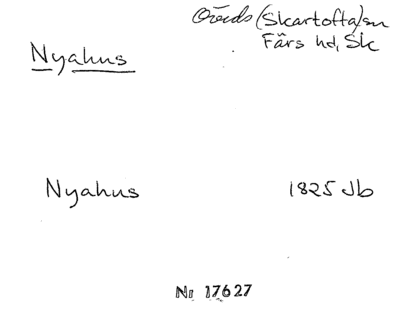 Öveds (Skartofta) sn
Färs hd, Sk
Nyahus
Nyahus 1825 Jb
Nr 17627